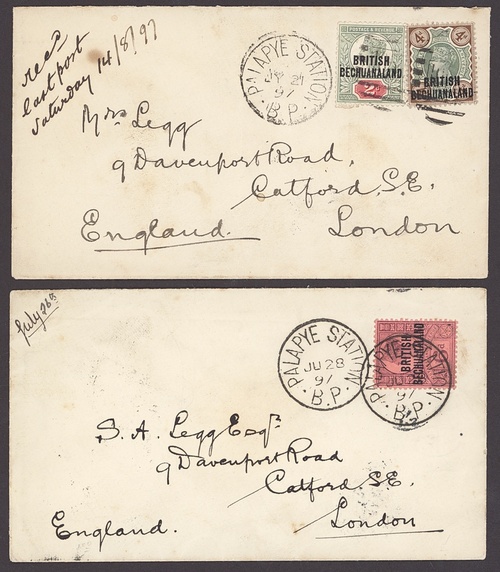 recd
last post
Saturday 14/8/97
PALAPYE STATION
21
97
B.P.
POSTAGE & REVENUE
BRITISH
BECHUANALAND
2d
4d 4d
BRITISH
BECHUANALAND
Mrs Legg
9 Davenport Road,
Catford, S.E.
England. London
July 26th
PALAPYE STATION
JU 28
97
B.P.
BRITISH
BECHUANALAND
PALAPYE STATION
97
B.P.
S. A. Legg Esqr
9 Davenport Road
Catford. S.E.
London
England.